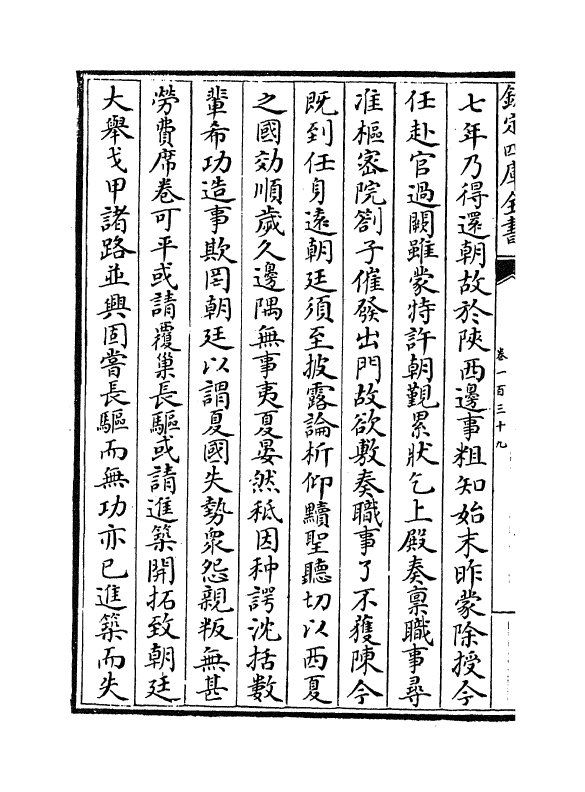 欽定四庫全書
卷一百三十九
七年乃得還朝故於陜西邊事粗知始末昨蒙除授今
任赴官過闕雖蒙特許朝覲累狀乞上殿奏稟職事尋
准樞密院劄子催發出門故欲敷奏職事了不獲陳今
既到任身遠朝廷須至披露論析仰黷聖聽切以西夏
之國効順歲久邊隅無事夷夏晏然秪因种諤沈括數
輩希功造事欺罔朝廷以謂夏國失勢衆怨親叛無甚
勞費席卷可平或請覆巢長驅或請進築開拓致朝廷
大舉戈甲諸路並興固嘗長驅而無功亦已進築而失